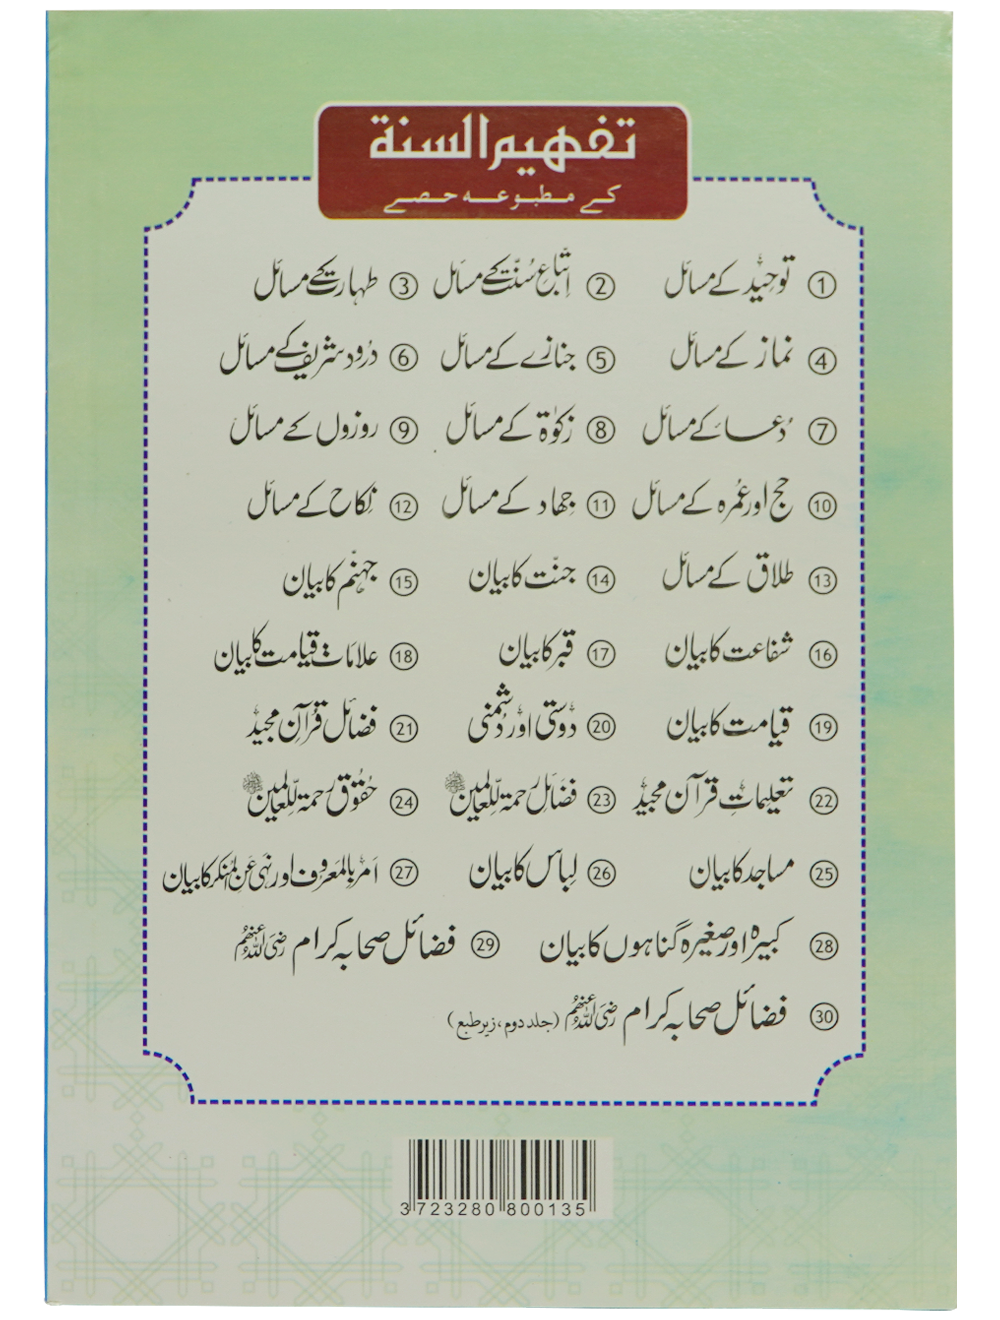 تفهیم السنة
کے مطبوعہ حصے
① توحید کے مسائل ② اتباعِ سُنّت کے مسائل ③ طہارت کے مسائل
④ نماز کے مسائل ⑤ جنازے کے مسائل ⑥ درود شریف کے مسائل
⑦ دُعا کے مسائل ⑧ زکوٰۃ کے مسائل ⑨ روزوں کے مسائل
⑩ حج اور عُمرہ کے مسائل ⑪ جہاد کے مسائل ⑫ نکاح کے مسائل
⑬ طلاق کے مسائل ⑭ جنّت کا بیان ⑮ جہنّم کا بیان
⑯ شفاعت کا بیان ⑰ قبر کا بیان ⑱ علاماتِ قیامت کا بیان
⑲ قیامت کا بیان ⑳ دوستی اور دُشمنی ㉑ فضائل قُرآن مجید
㉒ تعلیماتِ قرآن مجید ㉓ فضائل رحمۃ للّعالمین ﷺ ㉔ حُقوق رحمۃ للّعالمین ﷺ
㉕ مساجد کا بیان ㉖ لِباس کا بیان ㉗ اَمر بالمَعرُوف اور نہی عَنِ المُنکر کا بیان
㉘ کبیرہ اور صغیرہ گناہوں کا بیان ㉙ فضائل صحابہ کرام رضی اللہ عنہم
㉚ فضائل صحابہ کرام رضی اللہ عنہم (جلد دوم، زیر طبع)
3723280800135